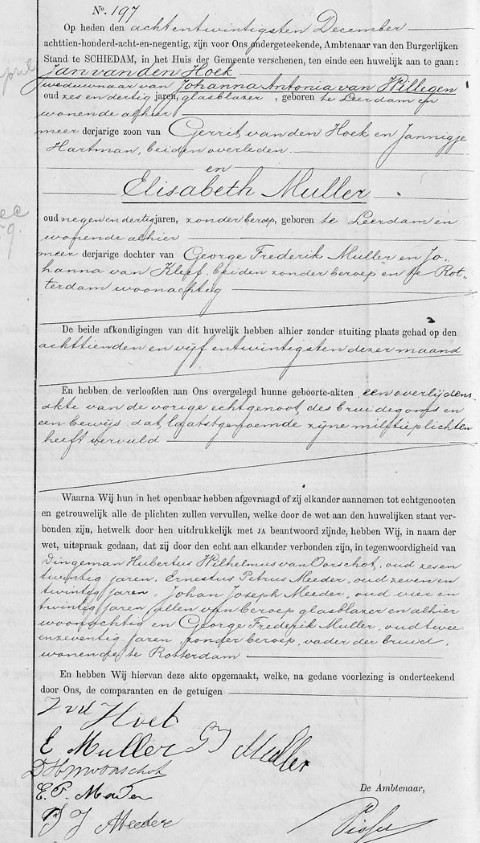 No. 197
Op heden den achtentwintigsten December
achttien-honderd-acht-en-negentig, zijn voor Ons ondergeteekende, Ambtenaar van den Burgerlijken
Stand te SCHIEDAM, in het Huis der Gemeente verschenen, ten einde een huwelijk aan te gaan:
Jan van den Hoek
weduwnaar van Johanna Antonia van Willegen
oud zes en dertig jaren, glasblazer, geboren te Leerdam en
wonende alhier
meer derjarige zoon van Gerrit van den Hoek en Jannigje
Hartman, beiden overleden
en
Elisabeth Muller
oud negen en dertig jaren, zonder beroep, geboren te Leerdam en
wonende alhier
meer derjarige dochter van George Frederik Muller en Jo-
hanna van Kleef, beiden zonder beroep en te Rot-
terdam woonachtig
De beide afkondigingen van dit huwelijk hebben alhier zonder stuiting plaats gehad op den
achttienden en vijf entwintigsten dezer maand
En hebben de verloofden aan Ons overgelegd hunne geboorte-akten een overlijdens
akte van de vorige echtgenoot des bruidegoms en
een bewijs dat laatstgenoemde zijne militieplichten
heeft vervuld
Waarna Wij hun in het openbaar hebben afgevraagd of zij elkander aannemen tot echtgenooten
en getrouwelijk alle de plichten zullen vervullen, welke door de wet aan den huwelijken staat ver-
bonden zijn, hetwelk door hen uitdrukkelijk met JA beantwoord zijnde, hebben Wij, in naam der
wet, uitspraak gedaan, dat zij door den echt aan elkander verbonden zijn, in tegenwoordigheid van
Dingeman Hubertus Wilhelmus van Oorschot, oud zes en
twintig jaren, Ernestus Petrus Meeder, oud zeven en
twintig jaren, Johan Joseph Meeder, oud vier en
twintig jaren, allen van beroep glasblazer en alhier
woonachtig en George Frederik Muller, oud twee
en zeventig jaren, zonder beroep, vader der bruid,
wonende te Rotterdam
En hebben Wij hiervan deze akte opgemaakt, welke, na gedane voorlezing is onderteekend
door Ons, de comparanten en de getuigen
J vd Hoek
E Muller GF Muller
DHW v Oorschot
E. P. Meeder
De Ambtenaar,
J J Meeder